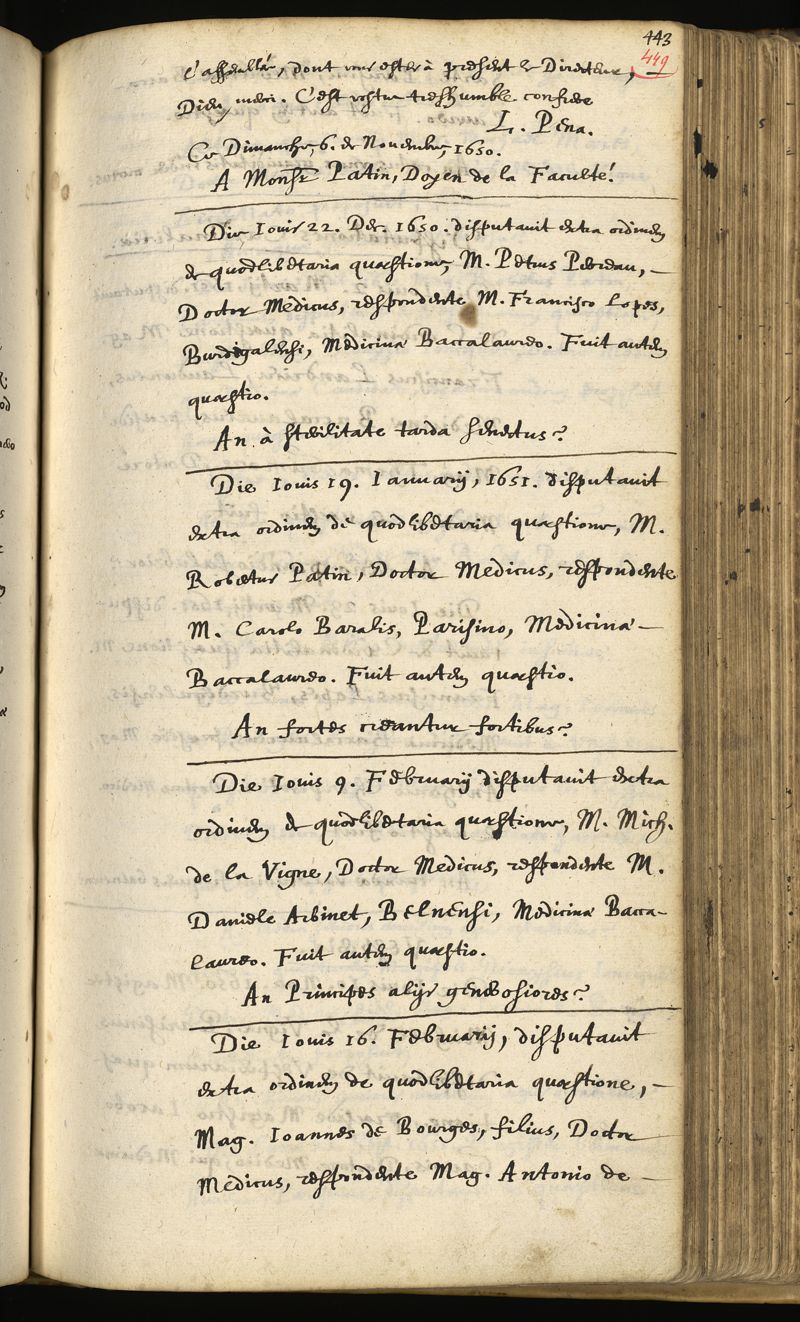 443
449
s'assembler, dont vous estes à present le Directeur,
Dieu merci. C'est vostre tres humble confrere
L. Pena.
Ce Dimanche, 6. de Novembre, 1650.
A Monsr. Patin, Doyen de la Faculté.
Die Iovis 22. Dec. 1650. disputavit extra ordinem
de quodlibetaria quæstione, M. Petrus Perreau, —
Doctor Medicus, respondente M. Francisco Lopes,
Burdigalensi, Medicinæ Baccalaureo. Fuit autem
quæstio.
An à sterilitate tarda senectus?
Die Iovis 19. Ianuarij, 1651. disputavit
extra ordinem de quodlibetaria quæstione, M.
Robertus Patin, Doctor Medicus, respondente
M. Carolo Baralis, Parisino, Medicinæ —
Baccalaureo. Fuit autem quæstio.
An fortes creantur fortibus?
Die Iovis 9. Februarij disputavit extra
ordinem de quodlibetaria quæstione, M. Mich.
de la Vigne, Doctor Medicus, respondente M.
Daniele Arbinet, Belnensi, Medicinæ Bacca-
laureo. Fuit autem quæstio.
An Principes alijs generosiores?
Die Iovis 16. Februarij, disputavit
extra ordinem de quodlibetaria quæstione, —
Mag. Ioannes de Bourges, filius, Doctor
Medicus, respondente Mag. Antonio de —